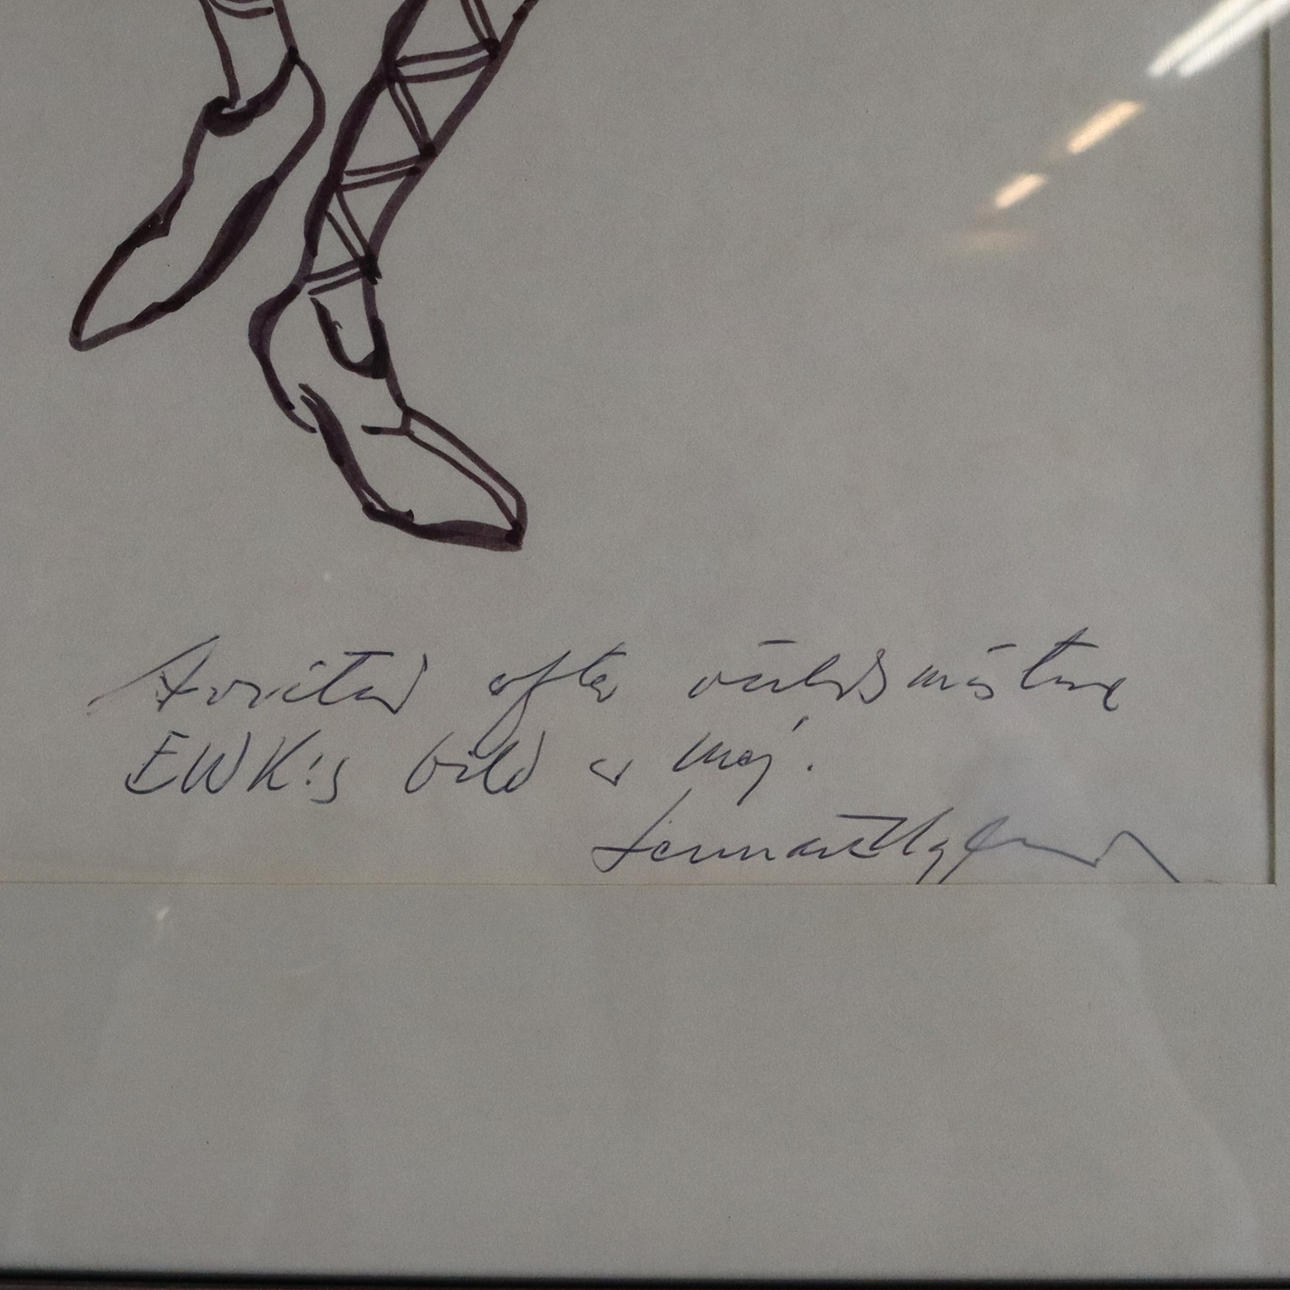 Avritad efter världsmästare
EWK:s bild av mig.
Lennart Hyland